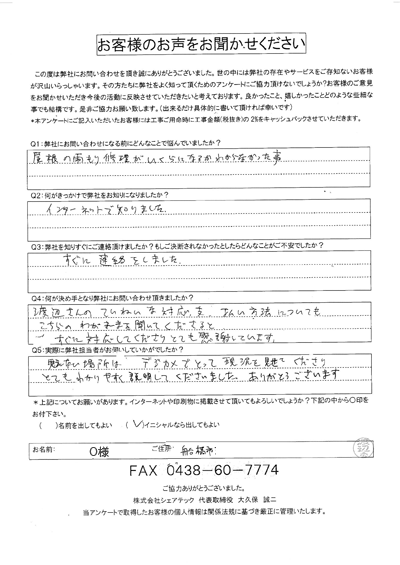 お客様のお声をお聞かせください
この度は弊社にお問い合わせを頂き誠にありがとうございました。世の中には弊社の存在やサービスをご存知ないお客様
が沢山いらっしゃいます。その方たちに弊社をよく知って頂くためのアンケートにご協力頂けないでしょうか？お客様のご意見
をお聞かせいただき今後の活動に反映させていただきたいと考えております。良かったこと、嬉しかったことどのような些細な
事でも結構です。是非ご協力お願い致します。（出来るだけ具体的に書いて頂ければ幸いです）
*本アンケートにご記入いただいたお客様には工事ご用命時に工事金額(税抜き)の2%をキャッシュバックさせていただきます。
Q1:弊社にお問い合わせになる前にどんなことで悩んでいましたか？
屋根の雨もり修理がいくらになるかわからなかった事
Q2:何がきっかけで弊社をお知りになりましたか？
インターネットで知りました
Q3:弊社を知りすぐにご連絡頂けましたか？もしご決断されなかったとしたらどんなことがご不安でしたか？
すぐに連絡をしました
Q4:何が決め手となり弊社にお問い合わせ頂きましたか？
渡辺さんのていねいな対応、支払い方法についても
こちらのわがままを聞いてくださると
すぐに対応してくださりとても感謝しています。
Q5:実際に弊社担当者がお伺いしていかがでしたか？
見えない場所は デジカメでとって 現況を見せてくださり
とてもわかりやすく説明してくださいました。ありがとうございます
*上記についてお願いがあります。インターネットや印刷物に掲載させて頂いてもよろしいでしょうか？下記の中から○印を
お付下さい。
( )名前を出してもよい (✓)イニシャルなら出してもよい
お名前: O様 ご住所: 船橋市
FAX 0438-60-7774
ご協力ありがとうございました。
株式会社シェアテック 代表取締役 大久保 誠二
当アンケートで取得したお客様の個人情報は関係法規に基づき厳正に管理いたします。